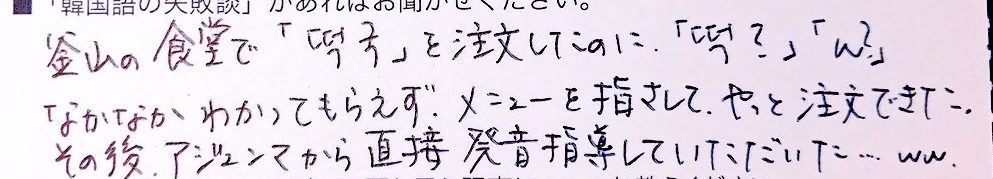 ■「韓国語の失敗談」があればお聞かせください。
釜山の食堂で「떡국」を注文したのに、「떡?」「w?」
なかなかわかってもらえず、メニューを指さして、やっと注文できた。
その後、アジュンマから直接発音指導していただいた… ww.